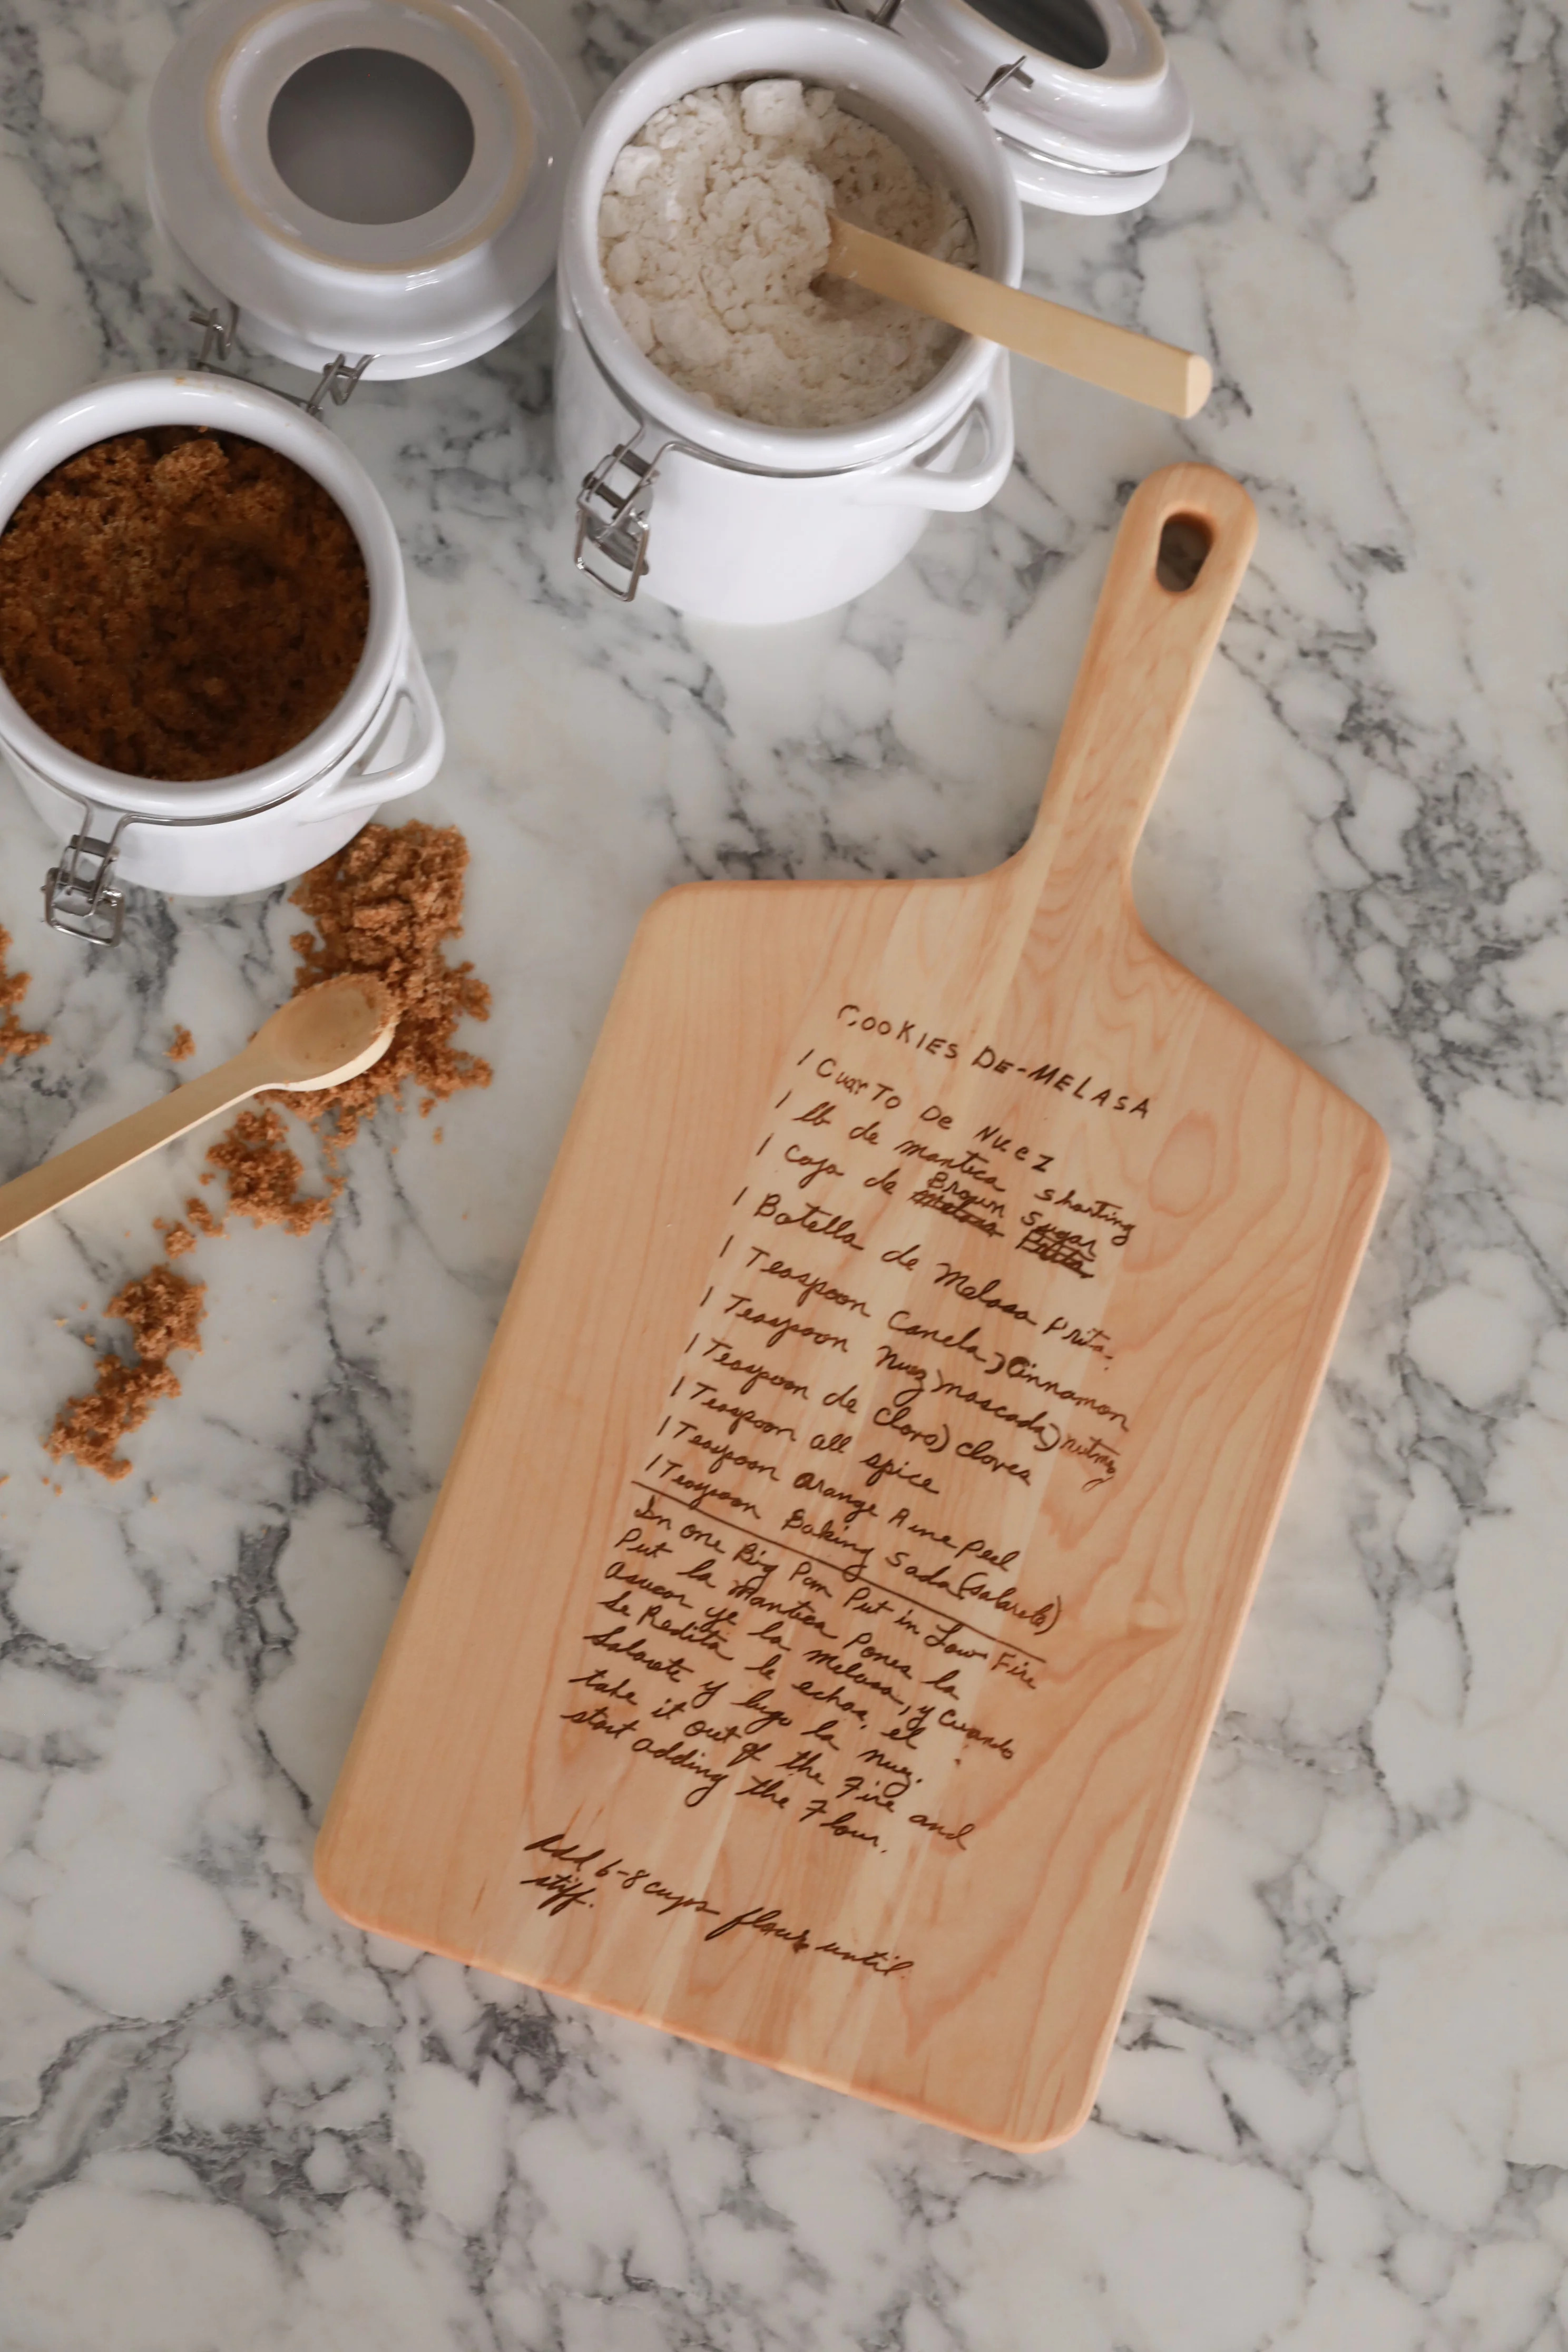 COOKIES DE-MELASA
1 CuarTO De Nuez
1 lb de manteca shorting
1 Caja de Brown Sugar
1 Botella de Melasa Prita.
1 Teaspoon Canela) Cinnamon
1 Teaspoon Nuez moscada) nutmeg
1 Teaspoon de Clavo) cloves
1 Teaspoon all spice
1 Teaspoon Orange Rine Peel
1 Teaspoon Baking Soda (salarete)
In one Big Pan Put in Low Fire
Put la Manteca Pones la
asucar ye la melasa, y cuando
Se Redita le echas, el
Salarete y lugo la nuez.
take it out of the Fire and
start adding the Flour.
Add 6-8 cups flour until
stiff.